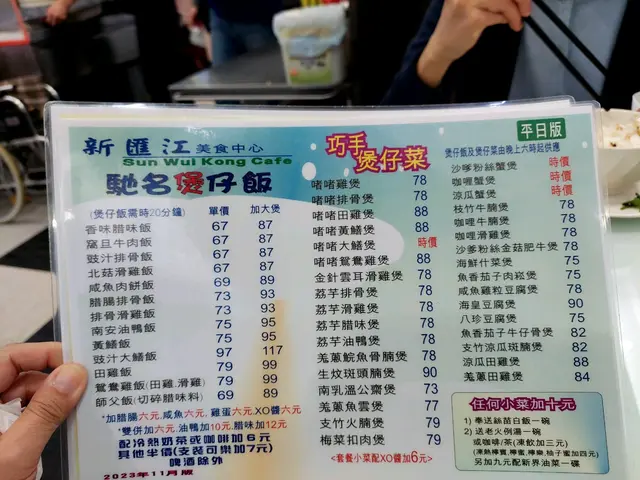 新匯江美食中心
Sun Wui Kong Cafe
馳名煲仔飯
(煲仔飯需時20分鐘) 單價 加大煲
香味腊味飯 67 87
窩旦牛肉飯 67 87
豉汁排骨飯 67 87
北菇滑雞飯 67 87
咸魚肉餅飯 69 89
腊腸排骨飯 73 93
南安油鴨飯 73 93
黃鱔飯 75 95
豉汁大鱔飯 75 95
田雞飯 97 117
鴛鴦雞飯(田雞.滑雞) 79 99
師父飯(切碎腊味料) 79 99
69 89
*加腊腸六元,咸魚六元,雞蛋六元.XO醬六元
*雙併加六元,油鴨加10元.腊味加12元
配冷熱奶茶或咖啡加6元
其他半價(支裝可樂加7元)
啤酒除外
2023年11月版
巧手煲仔菜
啫啫雞煲 78
啫啫排骨煲 78
啫啫田雞煲 88
啫啫黃鱔煲 88
啫啫大鱔煲 時價
啫啫鴛鴦雞煲 88
金針雲耳滑雞煲 78
荔芋排骨煲 78
荔芋滑雞煲 78
荔芋腊味煲 78
荔芋油鴨煲 78
羗蔥鯇魚骨腩煲 78
生炆斑頭腩煲 90
南乳溫公齋煲 73
羗蔥魚雲煲 77
支竹火腩煲 79
梅菜扣肉煲 79
<套餐小菜配XO醬加6元>
平日版
煲仔飯及煲仔菜由晚上六時起供應
沙爹粉絲蟹煲 時價
咖喱蟹煲 時價
涼瓜蟹煲 時價
枝竹牛腩煲 78
咖哩牛腩煲 78
咖哩滑雞煲 78
沙爹粉絲金菇肥牛煲 78
海鮮什菜煲 75
魚香茄子肉崧煲 75
咸魚雞粒豆腐煲 78
海皇豆腐煲 90
八珍豆腐煲 75
魚香茄子牛仔骨煲 82
支竹涼瓜斑腩煲 82
涼瓜田雞煲 88
羗蔥田雞煲 84
任何小菜加十元
1) 奉送絲苗白飯一碗
2) 送老火例湯一碗
或咖啡/茶(凍飲加三元)
(凍熱檸賓,檸蜜,檸樂,柚子蜜加四元)
另加九元配新界油菜一碟